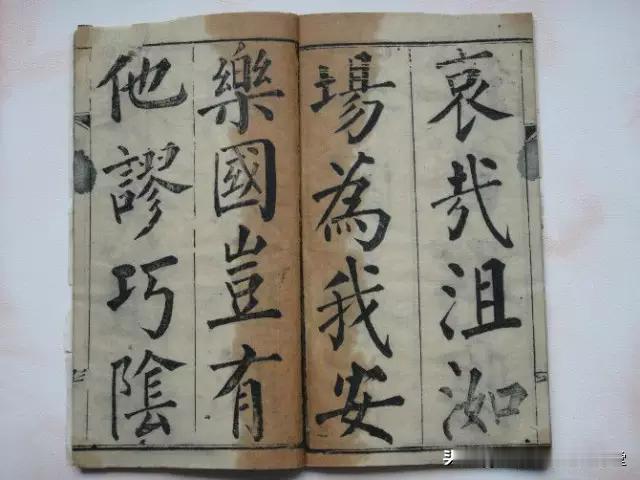 哀哉沮洳
場為我安
樂國豈有
他謬巧陰